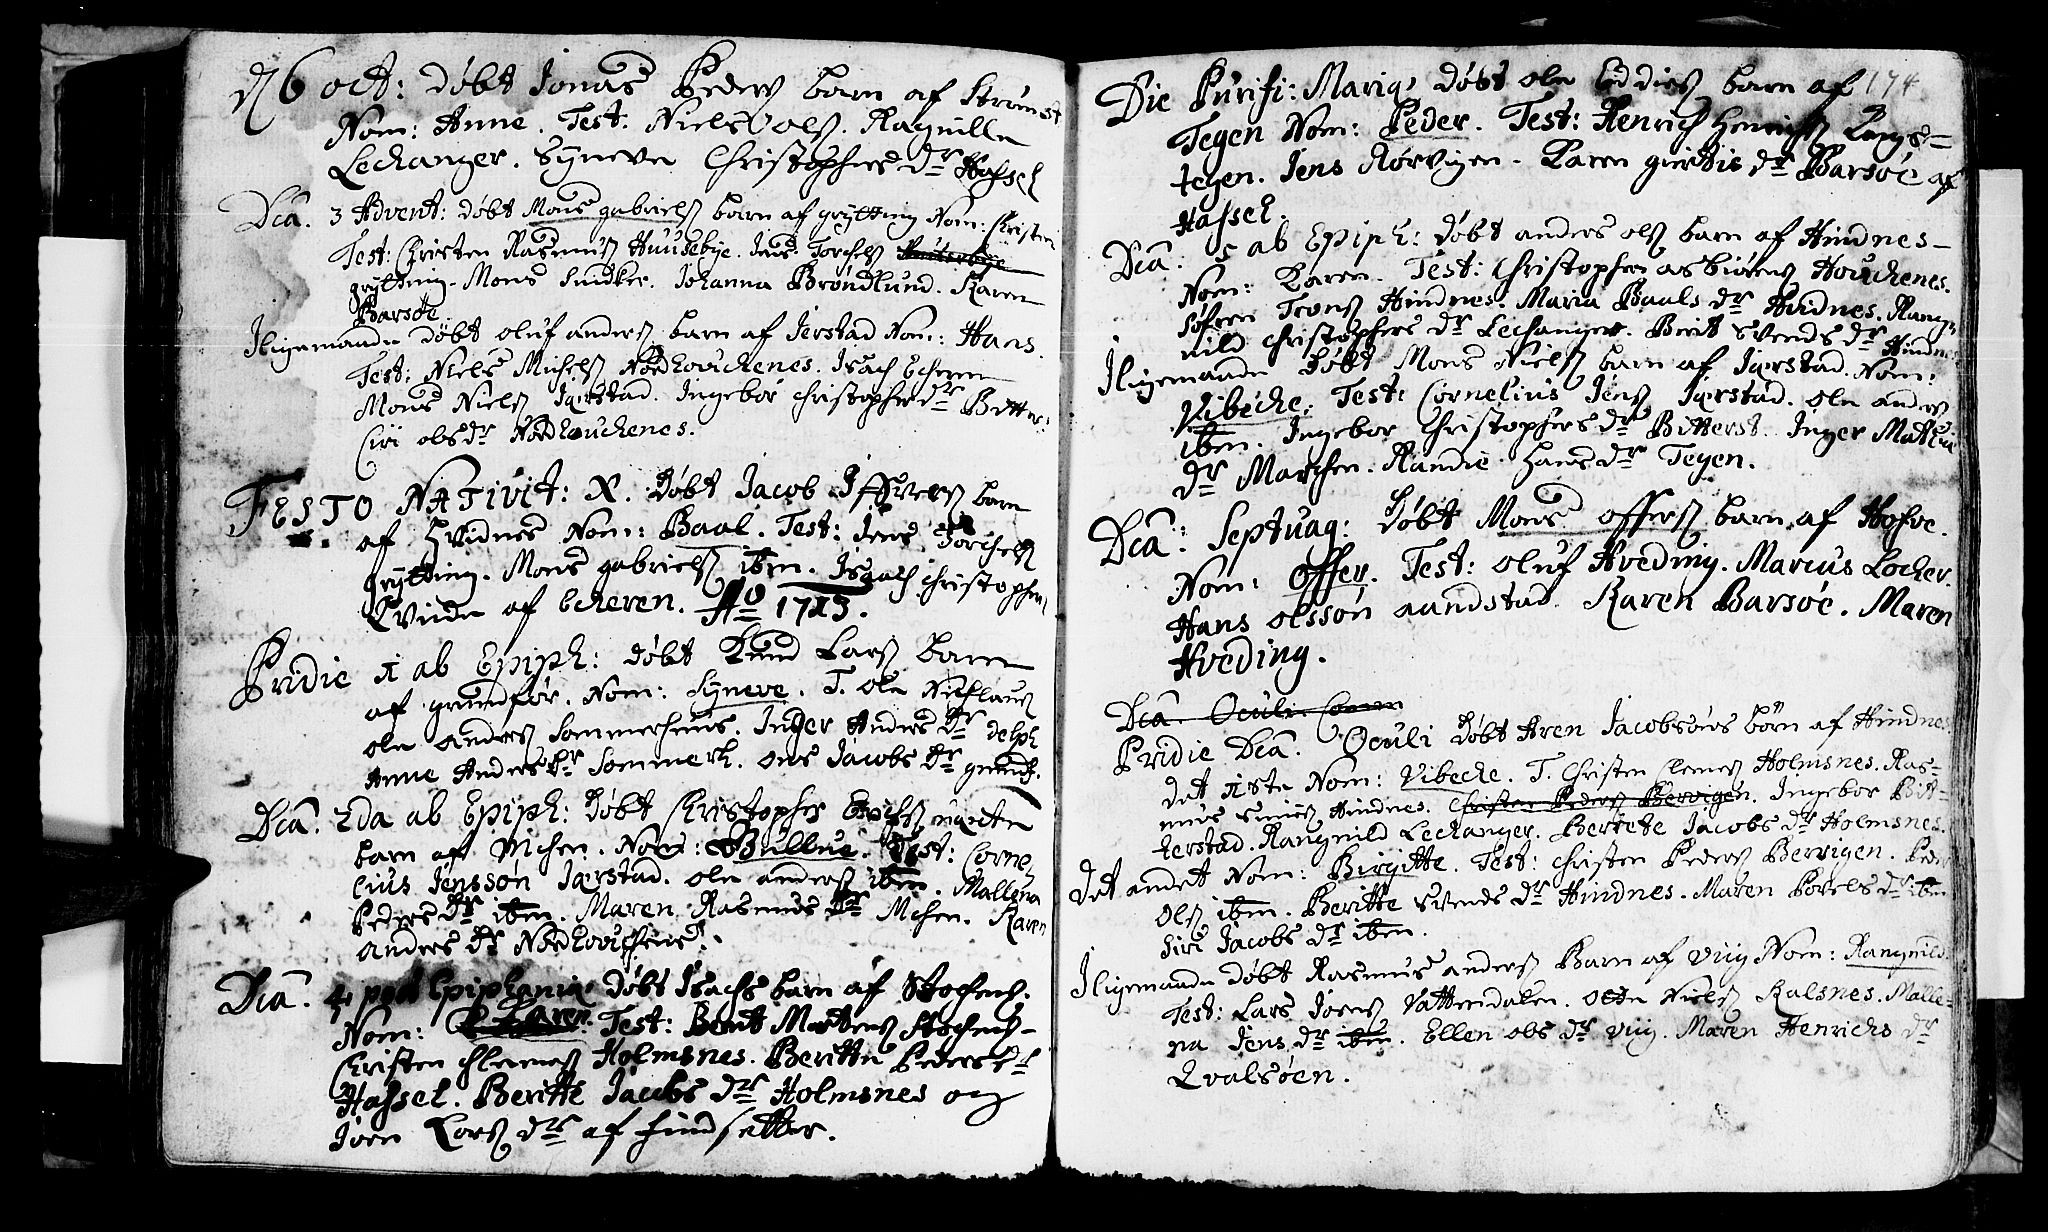 d 6 oct: døbt Jonas Peders barn af Strumst
Nom: Anne. Test: Niels Ols. Ragnille
Lechanger. Syneve Christophers dr Hassel
Dca. 3 Advent: døbt Mons gabriels barn af grytting Nom: Christen
Test: Christen Rasmus Huusebye. Jens Torchels
grytting. Mons Snidker. Johanna Brøndlund. Karen
Barsøe.
Iligemaade døbt oluf anders barn af Jerstad Nom: Hans.
Test: Niels Michels Nordhouchenes. Isach Echeren
Mons Niels Jqrstad. Ingebor Christopher dr Bitter:
Siri obs dr Nordhouchenes.
FESTO NATivit: X. døbt Jacob Iffvers barn
af Hvidnes Nom: Baal. Test: Jens Torchels
grytting. Mons gabriels ibm. Isach Christophers
Qvinde af Echeren. Ao 1713.
Pridie 1 ab Epiph: døbt Knud Lars barn
af grundfør. Nom: Syneve. T. Ole Nichlaus
ole anders Sommerhuus. Inger Anders dr delph
Anne Anders dr Sommerh. Ons Jacobs dr grundf.
Dca. 2da ab Epiph: døbt Christopher Erichs
barn af Mchen. Nom: Bulluc. Test: Corne
lius Jensson Jqrstad. ole anders ibm. Mallena
Peders dr ibm. Maren Rasmus dr Mchen. Karen
anders dr Nordhouchenes.
Dca. 4 post Epiphaniq døbt Isachs barn af Stochens.
Nom: Karen. Test: Bent Mortens Stochens-
Christen Clemes Holmsnes. Beritte Peders dr
Hassel. Beritte Jacobs dr Holmsnes og
Joen Lars dr af Findsetter.
Die Purifi: Mariq døbt ole Eddies barn af 174
Tegen Nom: Peder. Test: Henrich Henrichs Langs-
tegen. Jens Rørvigen. Karen giertis dr Barsøe af
Hassel.
Dca: 5 ab Epiph: døbt anders ols barn af Hindnes-
Nom: Karen. Test: Christopher asbiørens Houchenes.
Søfren Trons Hindnes. Maria Baals dr Hvidnes. Rang-
nild Christophers dr Lechanger. Berit Svends dr Hindnes
Iligemaade døbt Mons Niels barn af Jqrstad. Nom:
Vibeche. Test: Cornelius Jens Jqrstad. ole anders
ibm. Ingebor Christophers dr Bitterst. Inger Mattis
dr Marchen. Randie Hans dr Tegen.
Dca: Septuag: døbt Mons offers barn af Hofve.
Nom: Offer. Test: oluf Hveding. Marcus Locher.
Hans olsson aandstad. Karen Barsøe. Maren
Hveding.
Dca. Oculi
Pridie Dca. Oculi døbt Aren Jacobsøns børn af Hindnes
det 1ste Nom: Vibeche. T. Christen Clemes Holmsnes. Ras-
mus Hindnes. Christen Peders Bervigen. Ingebor Bit-
terstad. Rangnild Lechanger. Berrete Jacobs dr Holmsnes.
Det andet Nom: Birgitte. Test: Christen Peders Bervigen. Peder
Ols ibm. Beritte Svends dr Hindnes. Maren Porels dr ibm
Siri Jacobs dr ibm.
Iligemaade døbt Rasmus anders Barn af Viig Nom: Rangnild.
Test: Lars Joens Vattendalen. Otte Niels Kalsnes. Malle-
na Jens dr ibm. Ellen obs dr Viig. Maren Henrichs dr
Qvalsøen.